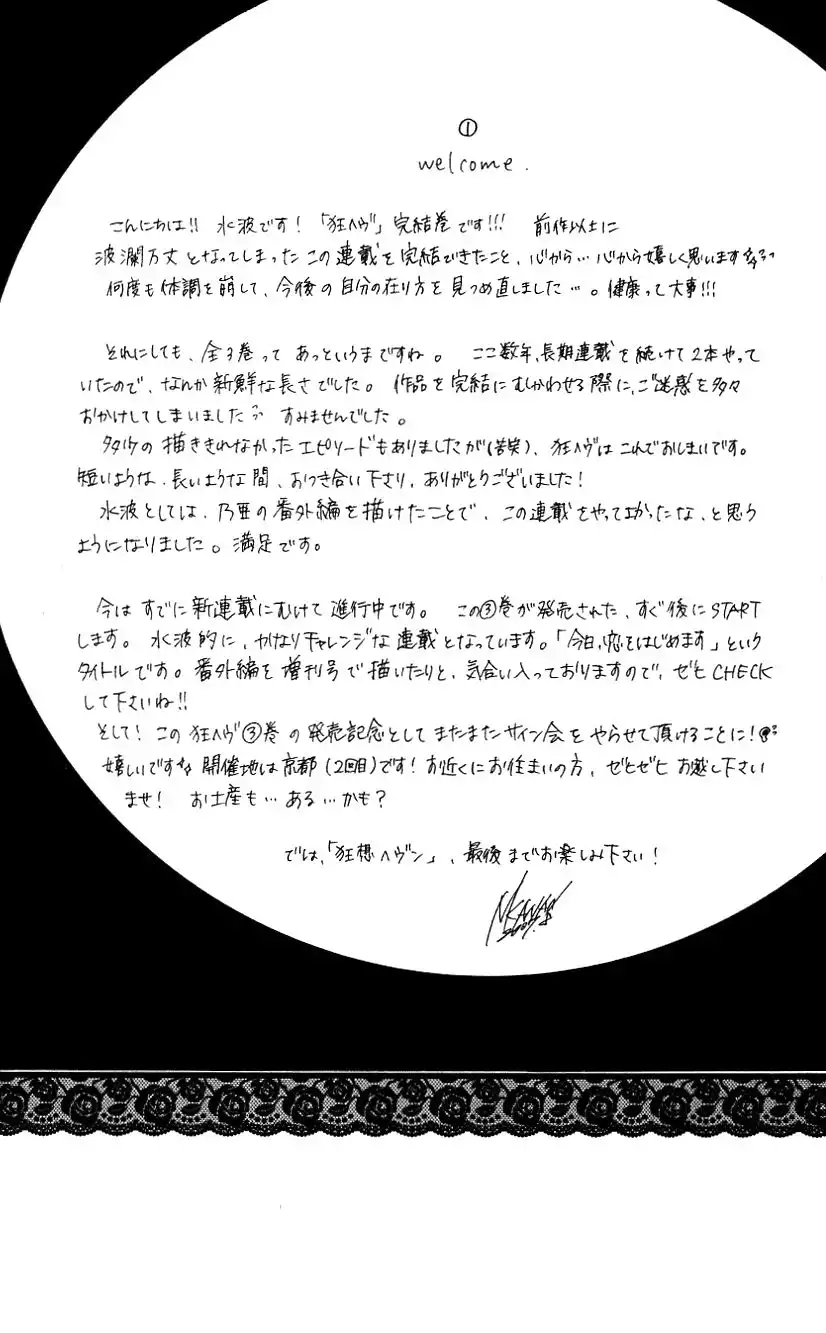 ①
welcome.
こんにちは!! 水波です!「狂ヘヴ」完結巻です!!! 前作以上に
波瀾万丈となってしまったこの連載を完結できたこと、心から…心から嬉しく思います
何度も体調を崩して、今後の自分の在り方を見つめ直しました…。健康って大事!!!
それにしても、全3巻ってあっというまですね。 ここ数年、長期連載を続けて2本やって
いたので、なんか新鮮な長さでした。 作品を完結にむかわせる際に、ご迷惑を多々
おかけしてしまいました すみませんでした。
多々の描ききれなかったエピソードもありましたが(苦笑)、狂ヘヴはこれでおしまいです。
短いような、長いような間、おつき合い下さり、ありがとうございました!
水波としては、乃亜の番外編を描けたことで、この連載をやってよかったな、と思う
ようになりました。満足です。
今はすでに新連載にむけて進行中です。 この③巻が発売された、すぐ後にSTART
します。 水波的に、かなりチャレンジな連載となっています。「今日、恋をはじめます」という
タイトルです。番外編を増刊号で描いたりと、気合い入っておりますので、ぜひCHECK
して下さいね!!
そして! この狂ヘヴ③巻の発売記念としてまたまたサイン会をやらせて頂けることに!
嬉しいですな 開催地は京都(2回目)です! お近くにお住まいの方、ぜひぜひお越し下さい
ませ! お土産も…ある…かも?
では、「狂想ヘヴン」、最後までお楽しみ下さい!